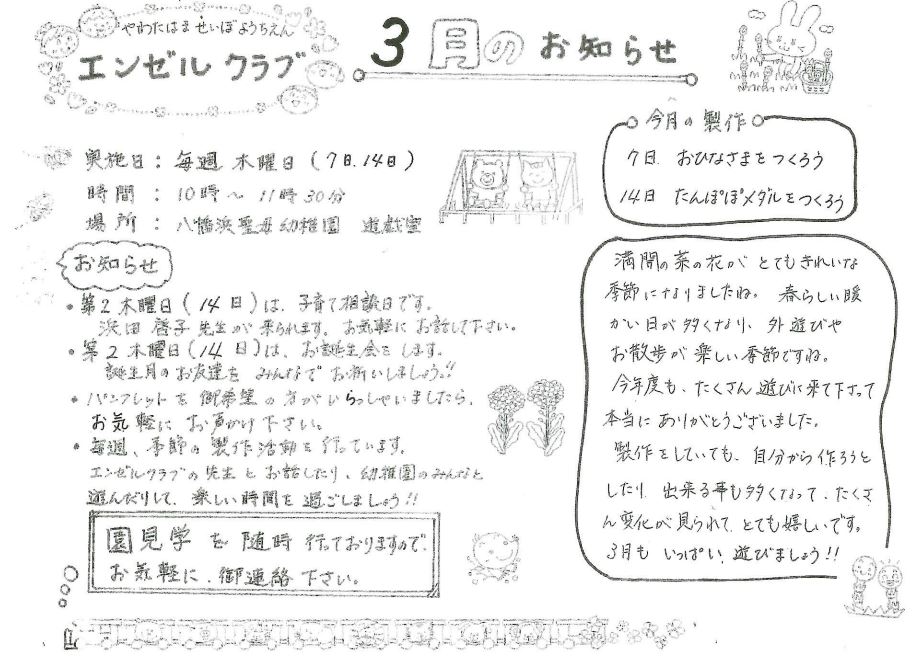 やわたはませいぼようちえん
エンゼルクラブ
3月のお知らせ
実施日：毎週 木曜日（7日.14日）
時間：10時～11時30分
場所：八幡浜聖母幼稚園 遊戯室
今月の製作
7日. おひなさまをつくろう
14日 たんぽぽメダルをつくろう
お知らせ
・第2木曜日（14日）は、子育て相談日です。
浜田 啓子先生が来られます。お気軽にお話して下さい。
・第2木曜日（14日）は、お誕生会をします。
誕生月のお友達を みんなでお祝いしましょう!!
・パンフレットを御希望の方がいらっしゃいましたら、
お気軽に お声かけ下さい。
・毎週、季節の製作活動を行っています。
エンゼルクラブの先生とお話したり、幼稚園のみんなと
遊んだりして、楽しい時間を過ごしましょう!!
園見学を随時行っておりますので、
お気軽に、御連絡下さい。
満開の菜の花が とてもきれいな
季節になりましたね。 春らしい暖
かい日が多くなり、外遊びや
お散歩が楽しい季節ですね。
今年度も、たくさん遊びに来て下さって
本当にありがとうございました。
製作をしていても、自分から作ろうと
したり、出来る事も多くなって、たくさ
ん変化が見られて、とても嬉しいです。
3月も いっぱい、遊びましょう!!